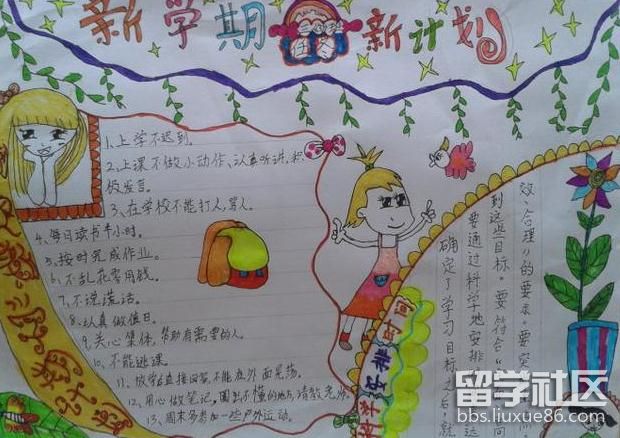 新学期 新计划
1、上学不迟到。
2、上课不做小动作、认真听讲,积
极发言。
3、在学校不能打人,骂人。
4、每日读书半小时。
5、按时完成作业。
6、不乱花零用钱。
7、不说谎话。
8、认真做值日。
9、关心集体,帮助有需要的人。
10、不能逃课。
11、放学后直接回家,不能在外面晃荡。
12、用心做笔记,圈出不懂的地方,请教老师。
13、周末多参加一些户外运动。
科学安排时间
确定了学习目标之后,就
要通过科学地安排
到这些目标。要符合“
效、合理”的要求。要
留学社区
bbs.liuxue86.com